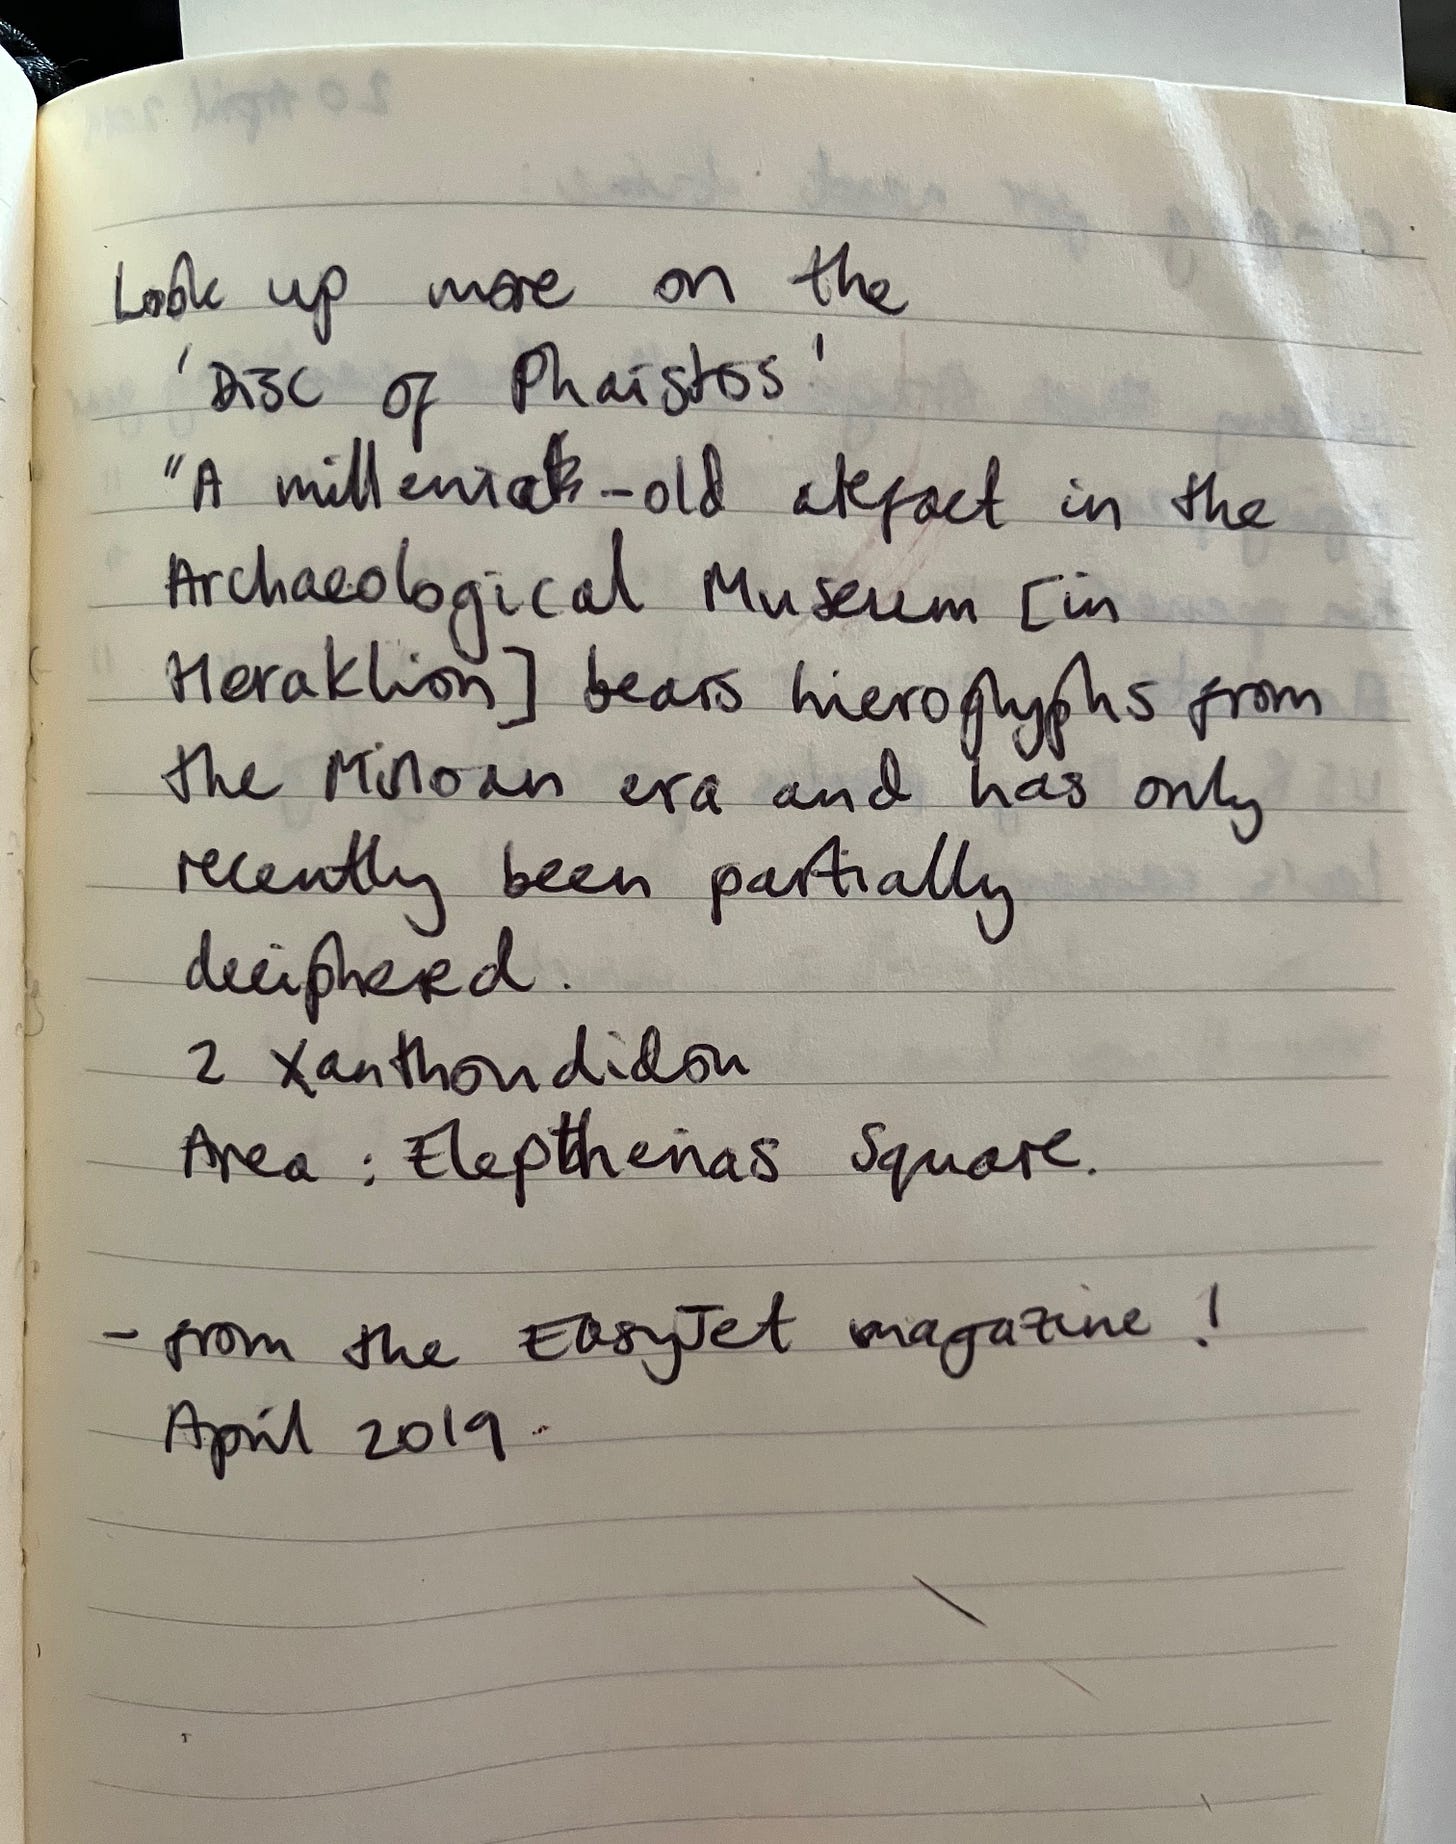 Look up more on the
'Disc of Phaistos'
"A millenia-old artefact in the
Archaeological Museum [in
Heraklion] bears hieroglyphs from
the Minoan era and has only
recently been partially
deciphered.
2 Xanthoudidou
Area : Elepthenias Square.
- from the EasyJet magazine !
April 2019